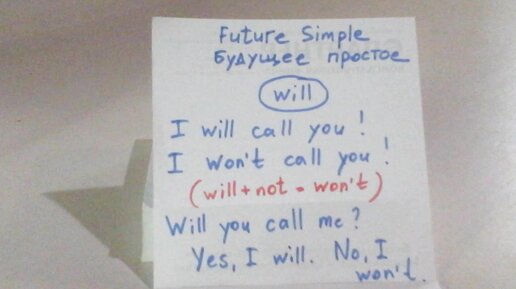 Future Simple
Будущее простое
will
I will call you!
I won't call you!
(will + not = won't)
Will you call me?
Yes, I will. No, I
won't.